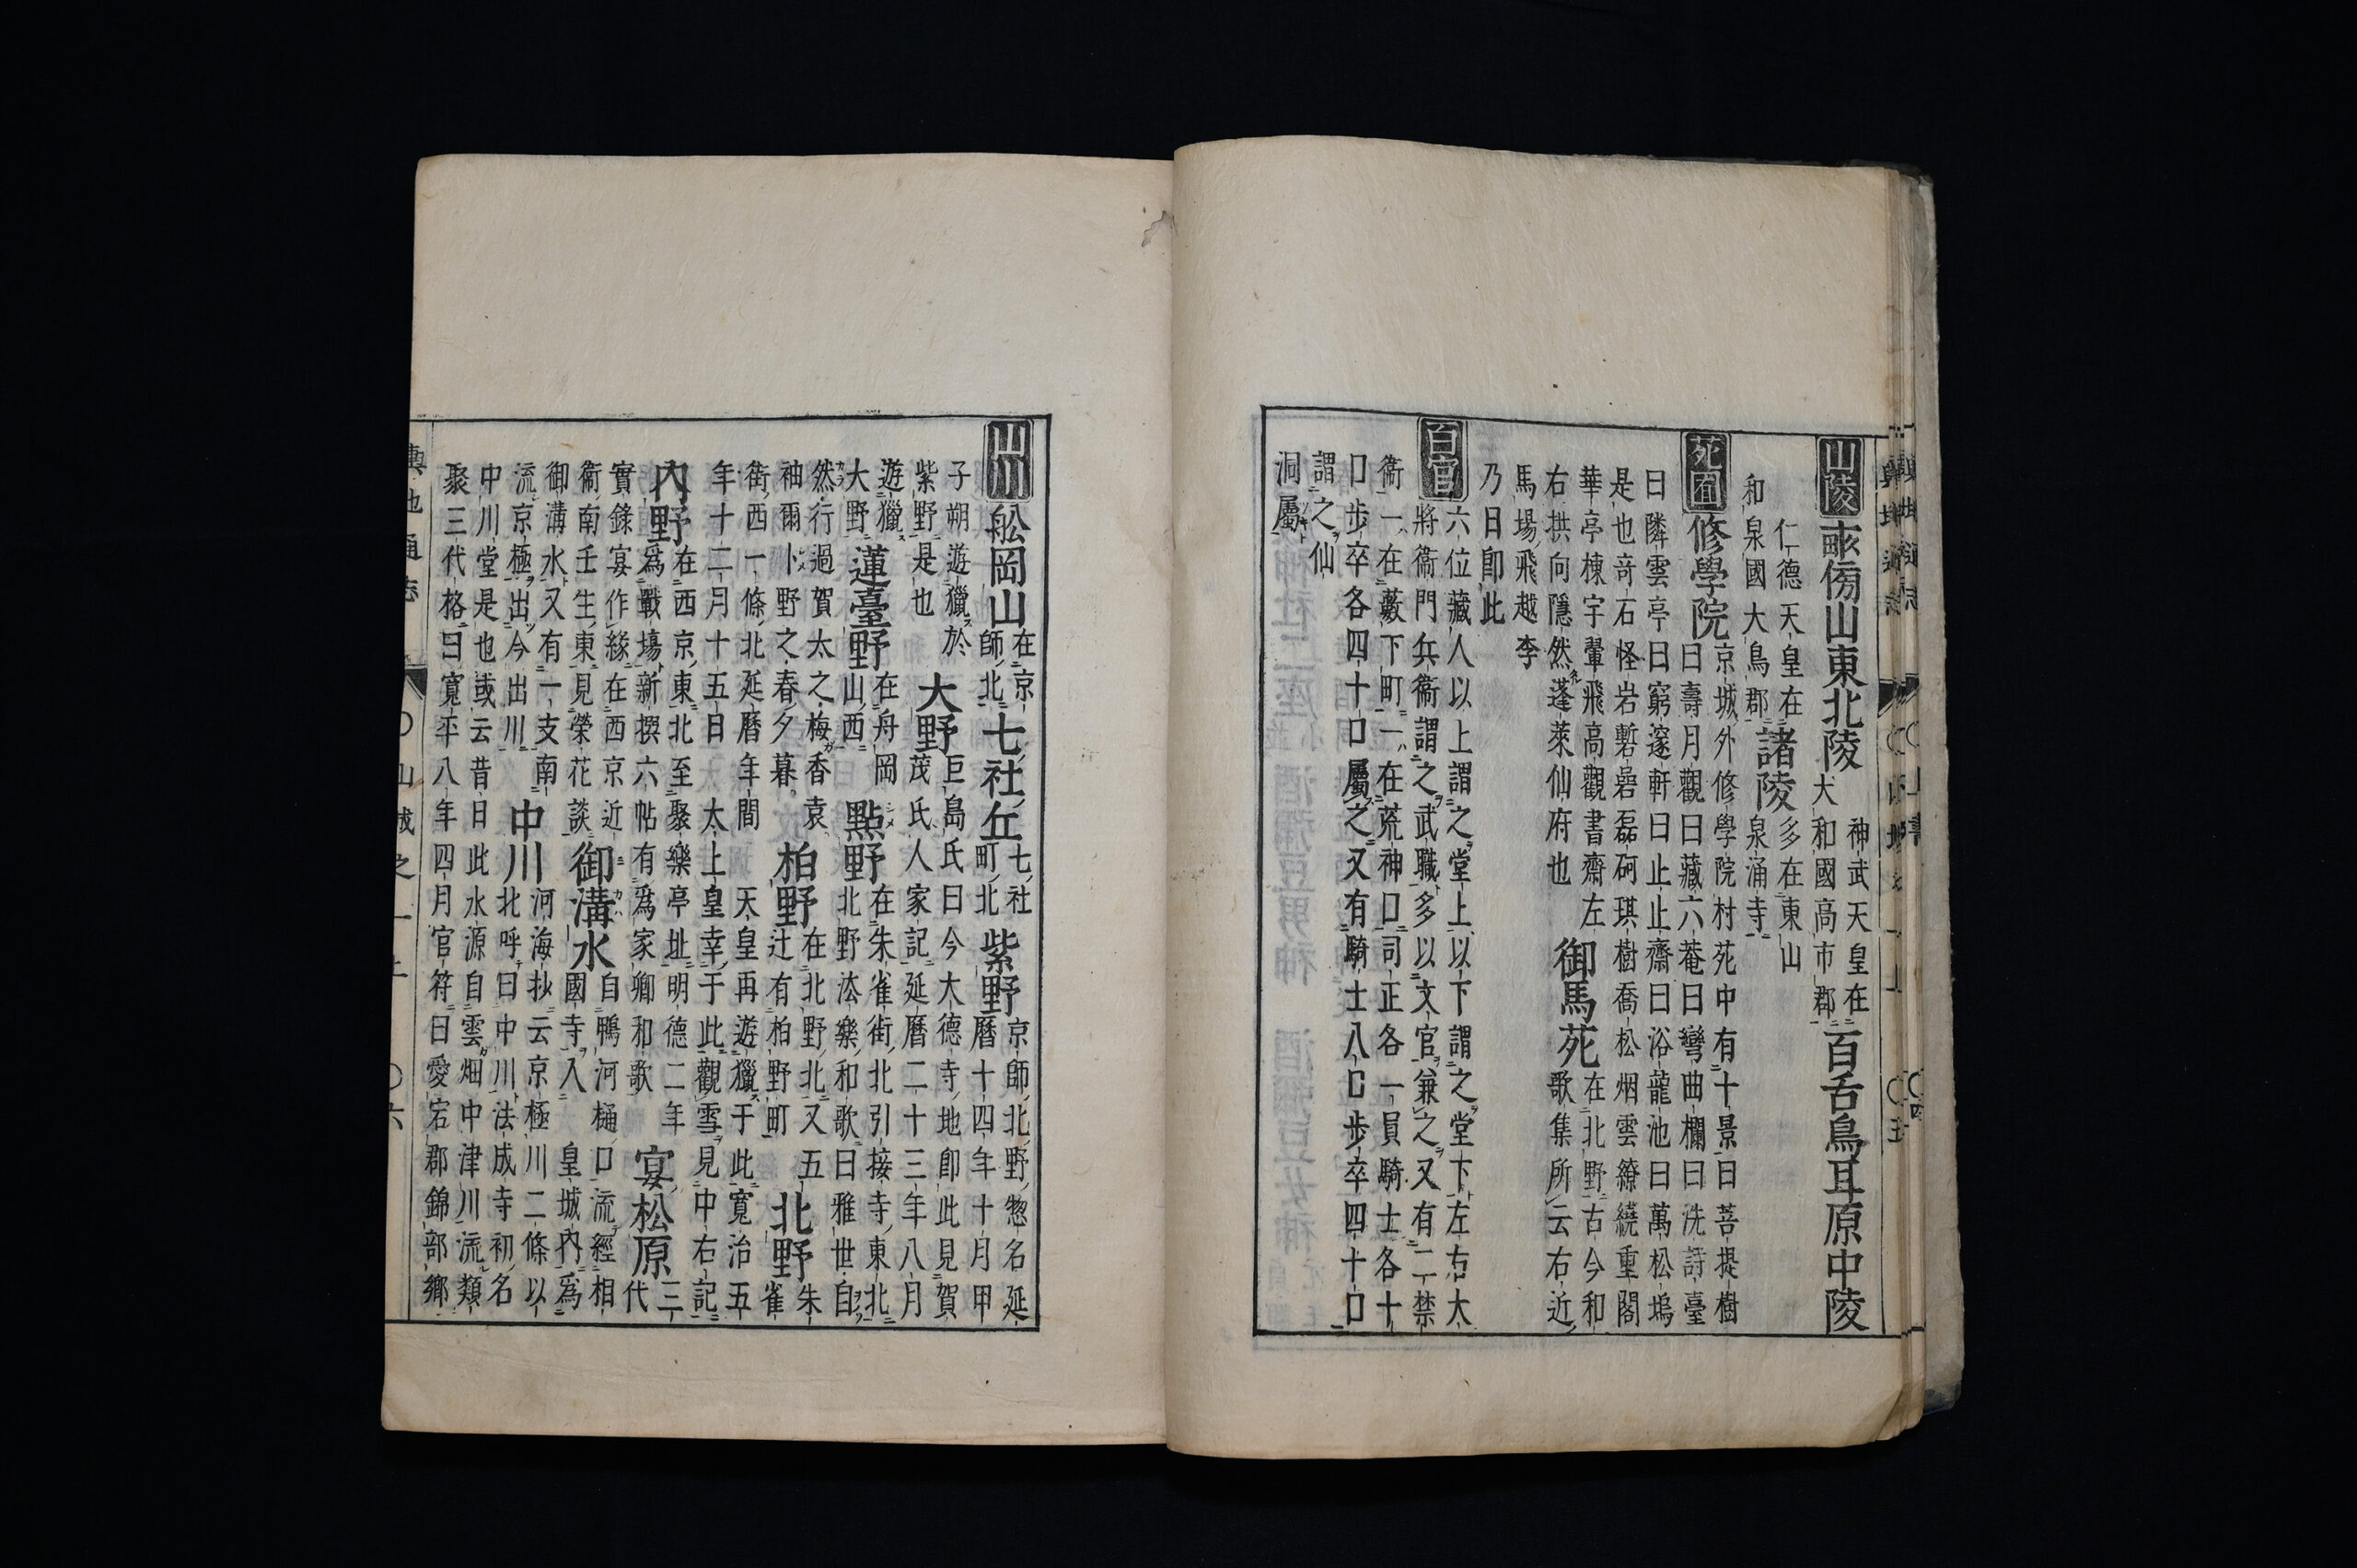 山陵
畝傍山東北陵
神武天皇在
大和國高市郡
百舌鳥耳原中陵
仁德天皇在
和泉國大鳥郡
諸陵
多在東山
泉涌寺
苑囿
修學院
京城外修學院村苑中有十景曰菩提樹
曰壽月觀曰藏六菴曰彎曲欄曰洗詩臺
曰隣雲亭曰窮邃軒曰止止齋曰浴龍池曰萬松塢
是也竒石怪岩礐磊砢琪樹喬松烟雲繚繞重閣
華亭棟宇翬飛高觀書齋左
右拱向隱然蓬萊仙府也
御馬苑
在北野古今和
歌集所云右近
馬場飛越李
乃日卽此
百官
六位藏人以上謂之堂上以下謂之堂下左右大
將衞門兵衞謂之武職多以文官兼之又有二禁
衞一在藪下町一在荒神口司正各一員騎士各十
口步卒各四十口屬之又有騎士八口步卒四十口
謂之仙
洞屬
山川
舩岡山
在京
師北
七社丘
七社
町北
紫野
京師北野惣名延
曆十四年十月甲
子朔遊獵於
紫野是也
大野
巨島氏曰今大德寺地卽此見賀
茂氏人家記延曆二十三年八月
遊獵
大野
蓮臺野
在舟岡
山西
點野
在朱雀街北引接寺東北
北野法樂和歌曰雅世自
然行過賀太之梅香袁
袖爾卜野之春夕暮
柏野
在北野北又五
辻有柏野町
北野
朱
雀
街西一條北延曆年間 天皇再遊獵于此寬治五
年十二月十五日 太上皇幸于此觀雪見中右記
內野
在西京東北至聚樂亭址明德二年
爲戰場新撰六帖有爲家卿和歌
宴松原
三
代
實錄宴作緣在西京近
衞南壬生東見榮花談
御溝水
自鴨河樋口流經相
國寺入 皇城內爲
御溝水又有一支南
流京極出今出川
中川
河海抄云京極川二條以
北呼曰中川法成寺初名
中川堂是也或云昔日此水源自雲畑中津川流類
聚三代格曰寬平八年四月官符曰愛宕郡錦部鄉
輿地通志 〇山城之一上 〇六